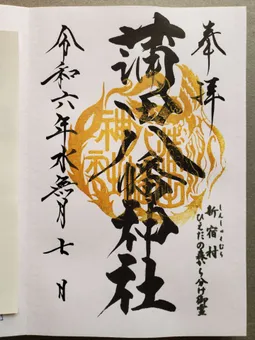 奉拝
しんしゅくむら
新宿村
ひえだの森から分け御霊
蒲田八幡神社
令和六年水無月七日